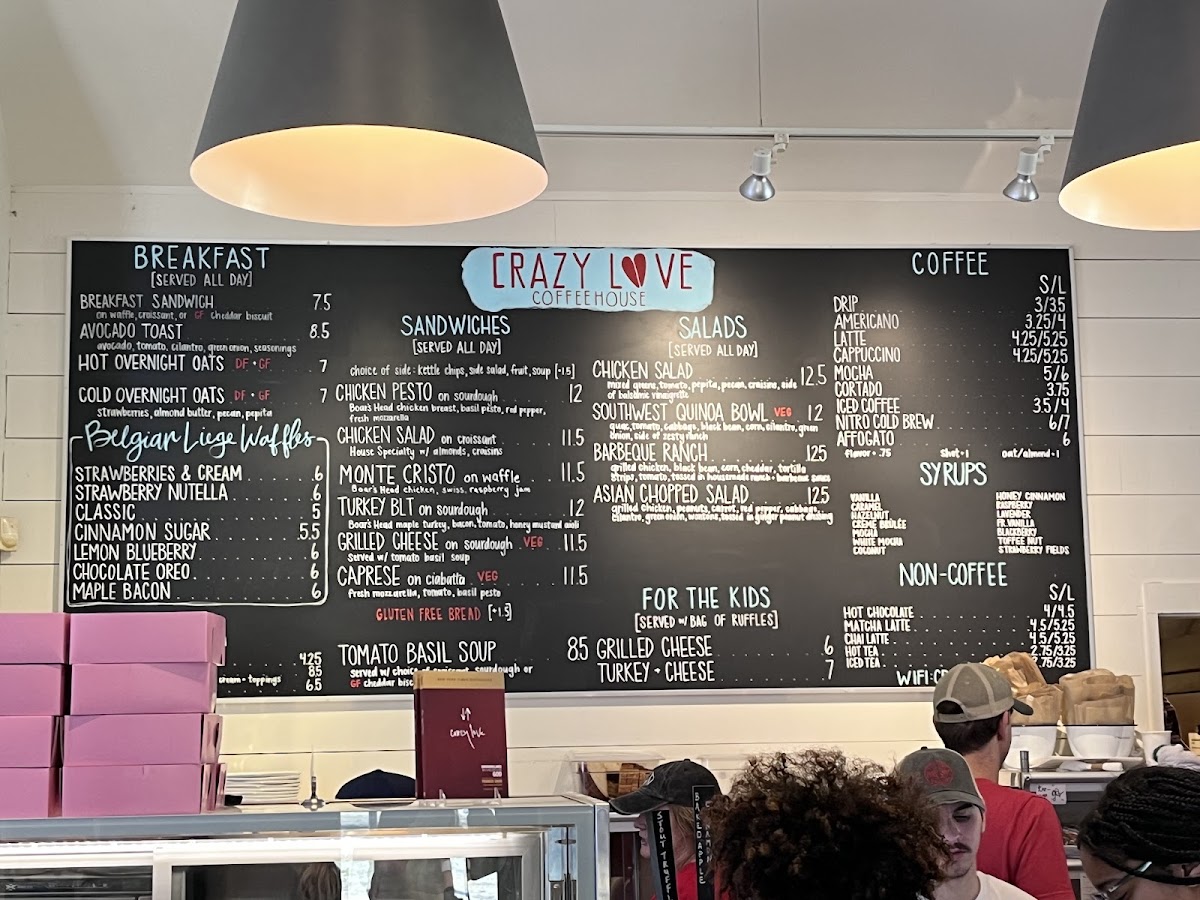 CRAZY LOVE
COFFEEHOUSE
BREAKFAST
[SERVED ALL DAY]
BREAKFAST SANDWICH 7.5
on waffle, croissant, or GF cheddar biscuit
AVOCADO TOAST 8.5
avocado, tomato, cilantro, green onion, seasonings
HOT OVERNIGHT OATS DF • GF 7
COLD OVERNIGHT OATS DF • GF 7
strawberries, almond butter, pecan, pepita
Belgian Liege Waffles
STRAWBERRIES & CREAM 6
STRAWBERRY NUTELLA 6
CLASSIC 5
CINNAMON SUGAR 5.5
LEMON BLUEBERRY 6
CHOCOLATE OREO 6
MAPLE BACON 6
4.25
cream + toppings 8.5
6.5
SANDWICHES
[SERVED ALL DAY]
choice of side: kettle chips, side salad, fruit, soup [+1.5]
CHICKEN PESTO on sourdough 12
Boar's Head chicken breast, basil pesto, red pepper,
fresh mozzarella
CHICKEN SALAD on croissant 11.5
House Specialty w/ almonds, craisins
MONTE CRISTO on waffle 11.5
Boar's Head chicken, swiss, raspberry jam
TURKEY BLT on sourdough 12
Boar's Head maple turkey, bacon, tomato, honey mustard aioli
GRILLED CHEESE on sourdough VEG 11.5
Served w/ tomato basil soup
CAPRESE on ciabatta VEG 11.5
fresh mozzarella, tomato, basil pesto
GLUTEN FREE BREAD [+1.5]
TOMATO BASIL SOUP 8.5
served w/ choice of croissant, sourdough or
GF cheddar bisc
SALADS
[SERVED ALL DAY]
CHICKEN SALAD 12.5
mixed greens, tomato, pepita, pecan, craisins, side
of balsamic vinaigrette
SOUTHWEST QUINOA BOWL VEG 12
guac, tomato, cabbage, black bean, corn, cilantro, green
onion, side of zesty ranch
BARBEQUE RANCH 12.5
grilled chicken, black bean, corn, cheddar, tortilla
strips, tomato, tossed in housemade ranch + barbeque sauce
ASIAN CHOPPED SALAD 12.5
grilled chicken, peanuts, carrot, red pepper, cabbage,
cilantro, green onion, wontons, tossed in ginger peanut dressing
FOR THE KIDS
[SERVED w/ BAG OF RUFFLES]
GRILLED CHEESE 6
TURKEY + CHEESE 7
COFFEE
S/L
DRIP 3/3.5
AMERICANO 3.25/4
LATTE 4.25/5.25
CAPPUCCINO 4.25/5.25
MOCHA 5/6
CORTADO 3.75
ICED COFFEE 3.5/4
NITRO COLD BREW 6/7
AFFOGATO 6
flavor + .75 shot + 1 oat/almond + 1
SYRUPS
VANILLA
CARAMEL
HAZELNUT
CREME BRULÉE
MOCHA
WHITE MOCHA
COCONUT
HONEY CINNAMON
RASPBERRY
LAVENDER
FR. VANILLA
BLACKBERRY
TOFFEE NUT
STRAWBERRY FIELDS
NON-COFFEE
S/L
HOT CHOCOLATE 4/4.5
MATCHA LATTE 4.5/5.25
CHAI LATTE 4.5/5.25
HOT TEA 2.75/3.25
ICED TEA 2.75/3.25
WIFI:
crazy love
STOUT TRUFFL
BAKED APPLE
to-go